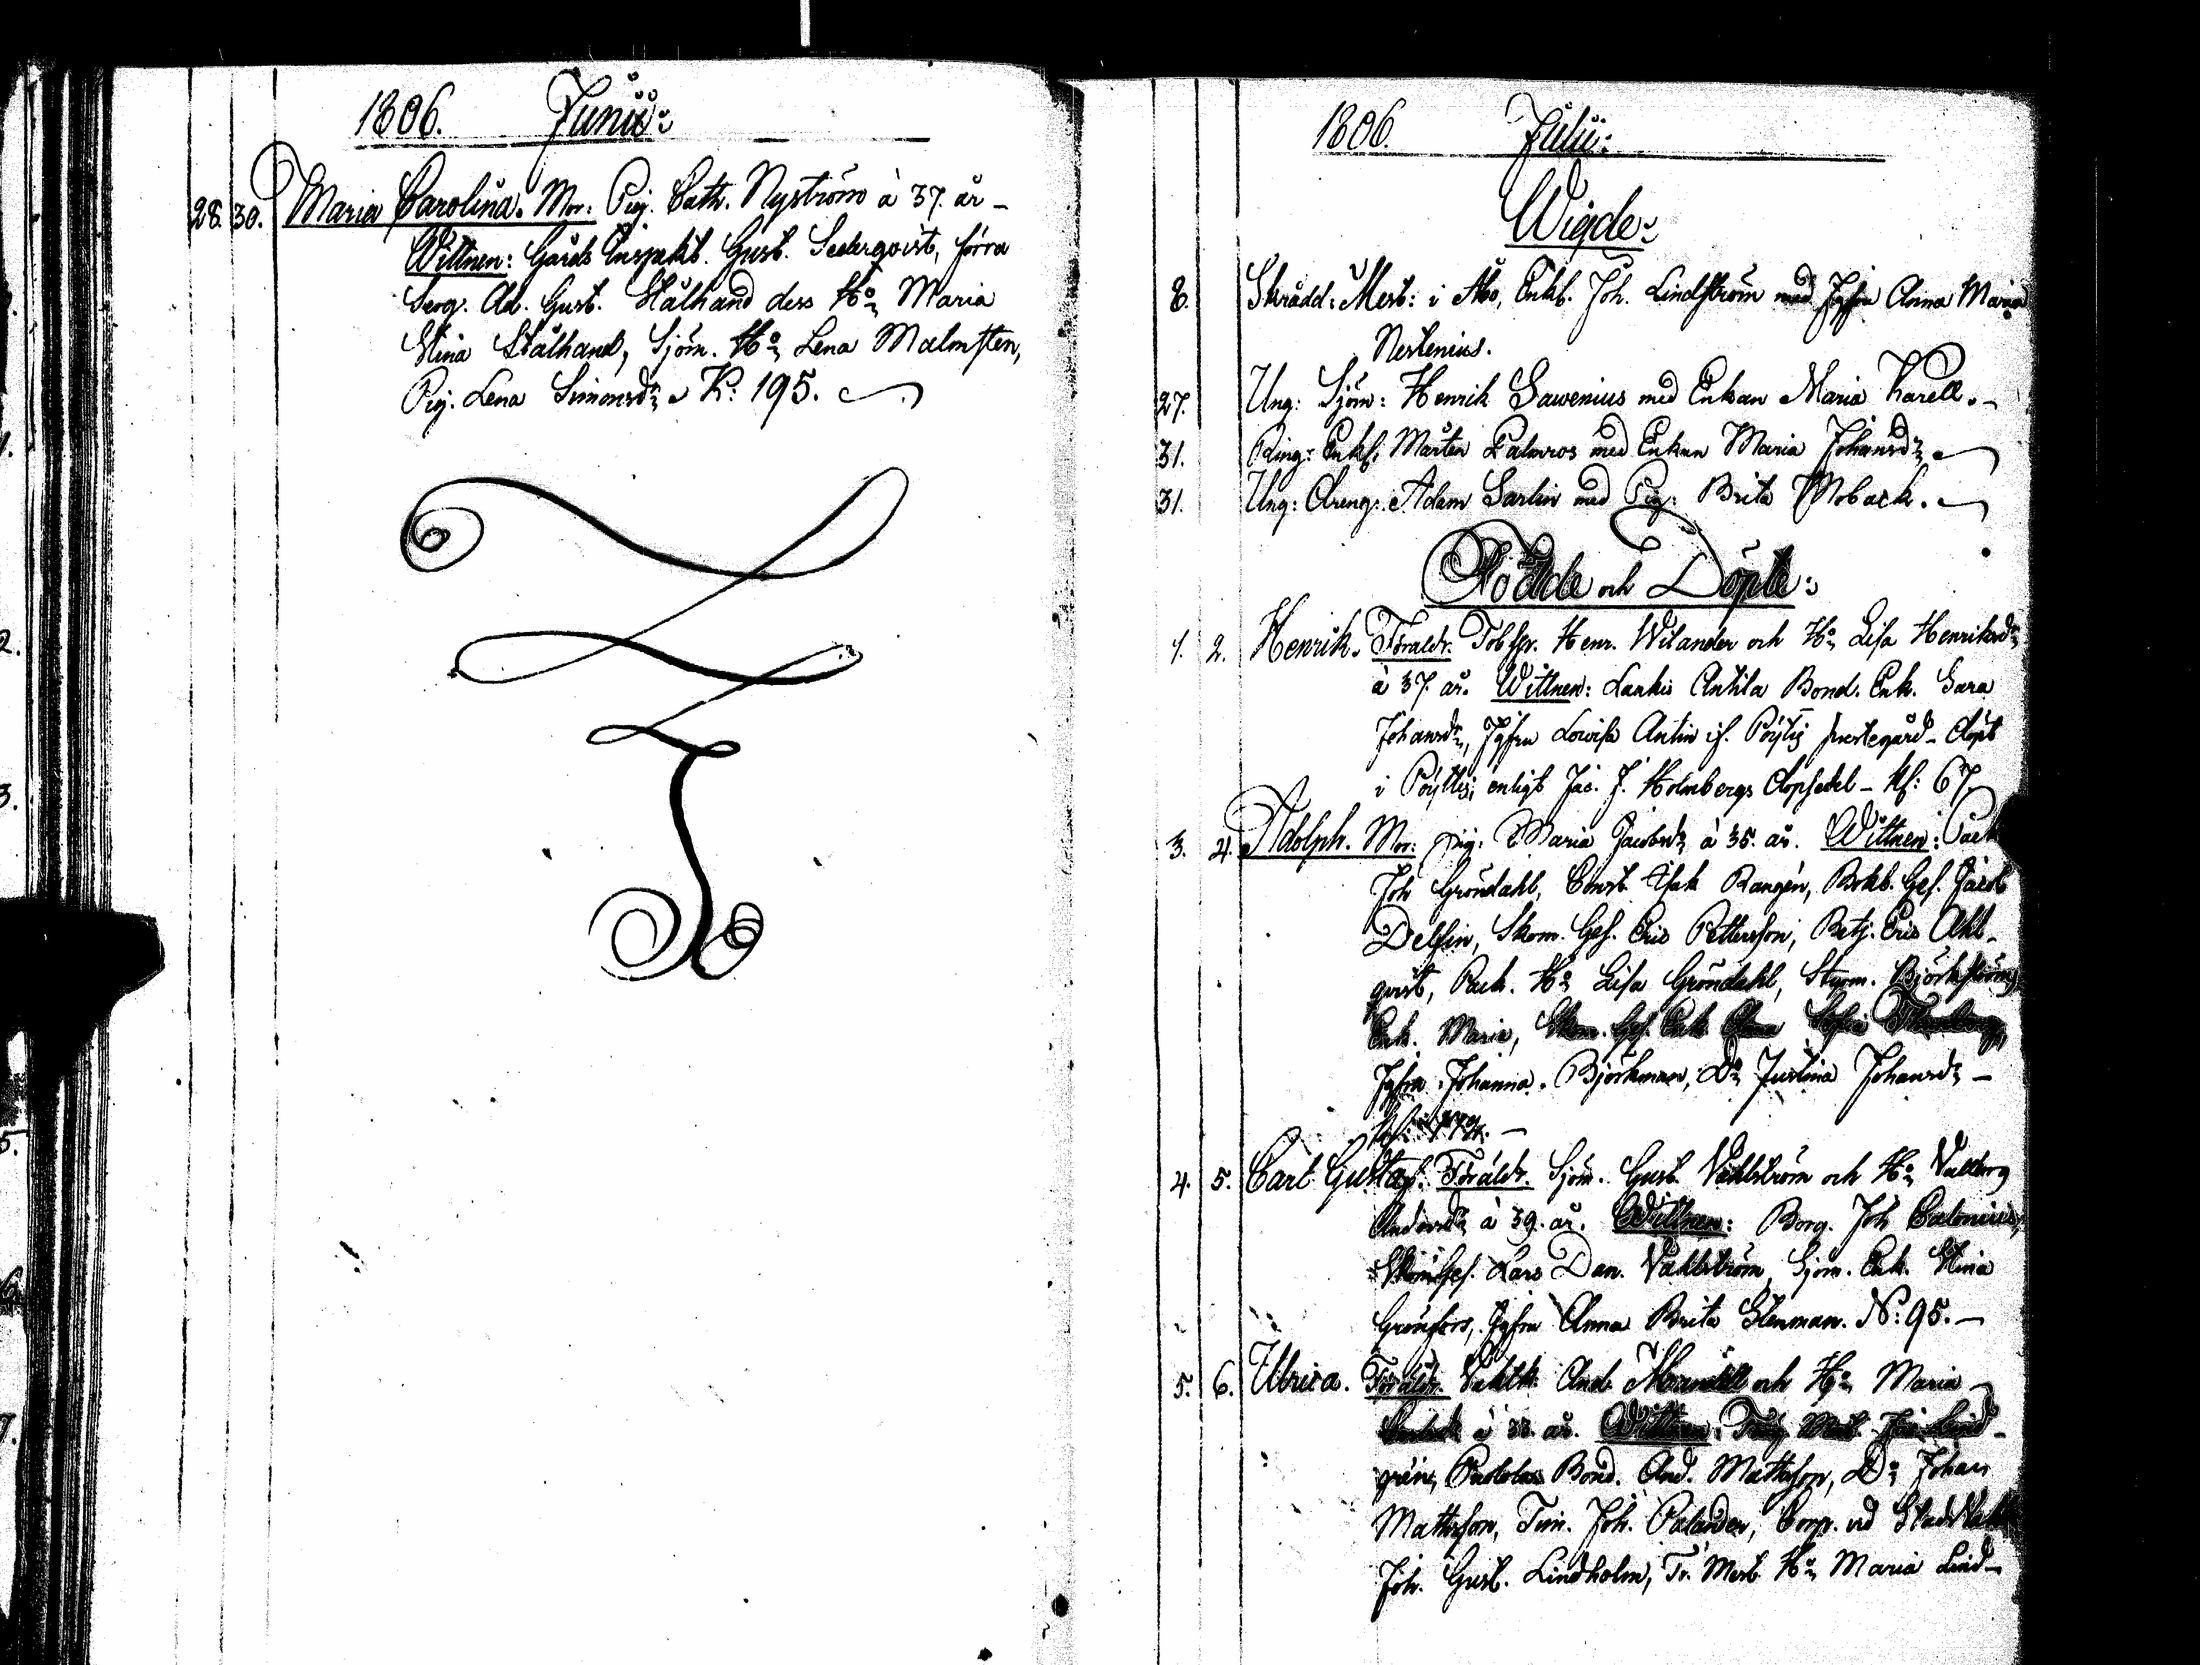 1806. Junii:
28. 30. Maria Carolina. Mor: Pig. Cath. Nyström à 37. år -
Wittnen: Gårds Inspekt. Gust. Sederqvist, förra
Serg. Ad. Gust. Stålhand dess Ho Maria
Stina Stålhand, Sjöm. Ho Lena Malmsten,
Pig. Lena Simonsdr K: 195.
1806. Julii:
Wigde:
8. Skrädd: Mest: i Åbo, Enkl. Joh. Lindström med Jgfru Anna Maria
Nestenius.
27. Ung: Sjöm: Henrik Sawenius med Enkan Maria Karell. -
31. Ring: Enkl. Mårten Palmros med Enkan Maria Johansdr
31. Ung: Dreng: Adam Sarlin med Pig: Brita Moback.
Födde och Döpte:
1. 2. Henrik. Föräldr. Tobksp. Henr. Wilander och Ho Lisa Henriksdr
à 37. år. Wittnen: Lankis Antila Bond. Enk. Sara
Johansdr, Jgfru Lovisa Antin if. Pöytis prestegård - döpt
i Pöyttis, enligt Jac. J. Holmbergs dopsedel - K: 67.
3. 4. Adolph. Mor: Pig: Maria Jacobsdr à 35. år. Wittnen: Pack.
Joh Gröndahl, Const. Isak Rangén, Bokb. Ges. Jacob
Delfin, Skom. Ges. Eric Pettersson, Betj. Eric Ahl-
qvist, Pack. Ho Lisa Gröndahl, Styrm. Björkströms
Enk. Maria, Skom. Ges. Enk. Sofia
Jgfru Johanna Björkman, Do Justina Johansdr -
4. 5. Carl Gustaf. Föräldr. Sjöm. Gust. Vahlström och Ho Valborg
Andersdr à 39. år. Wittnen: Borg. Joh Calonius,
Skom. Ges. Lars Dan. Vahlström, Sjöm. Enk. Stina
Grönfors, Jgfru Anna Brita Stenman. N: 95. -
5. 6. Ulrica. Föräldr. Vaktk. And. och Ho Maria
à 33. år. Wittnen: Mest. Lind-
grén, Bond. And. Mattsson, Do Johan
Mattsson, Tim. Joh. Palander, Corp. vid Stads Vakt
Joh. Gust. Lindholm, Tr. Mest. Ho Maria Lind-